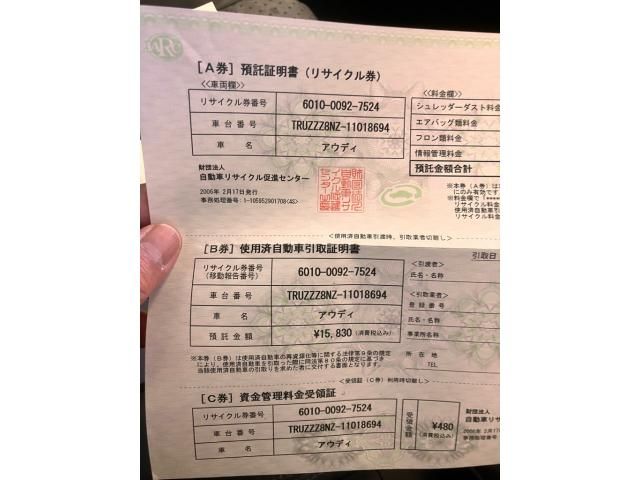 [A券] 預託証明書 (リサイクル券)
<<車両欄>>
リサイクル券番号 6010-0092-7524
車台番号 TRUZZZ8NZ-11018694
車名 アウディ
<<料金欄>>
シュレッダーダスト料金
エアバッグ類料金
フロン類料金
情報管理料金
預託金額合計
財団法人
自動車リサイクル促進センター
2006年 2月17日発行
事務処理番号: 1-105952901708(4S)
※本券(A券)は
にのみ有効です。
リサイクル料金
<使用済自動車引渡時、引取業者切離し>
[B券] 使用済自動車引取証明書
引取日
リサイクル券番号
(移動報告番号) 6010-0092-7524
車台番号 TRUZZZ8NZ-11018694
車名 アウディ
預託金額 ¥15,830 (消費税込み)
<引渡者>
氏名・名称
<引取業者>
登録番号
氏名・名称
事業所名称
所在地
TEL
※本券(B券)は使用済自動車の再資源化等に関する法律第9条の規定
により、使用済自動車を引取った際に同法第80条の規定に基づき
当該使用済自動車の引取りを求めた者に交付する書面となります。
<受領証(C券)利用時切離し>
[C券] 資金管理料金受領証
リサイクル券番号 6010-0092-7524
車台番号 TRUZZZ8NZ-11018694
車名 アウディ
受領金額 ¥480
(消費税込み)
財団法人
自動車リサ
2006年 2月17
事務処理番号: